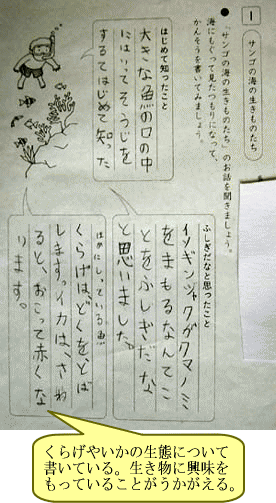 1
サンゴの海の生きものたち
● 「サンゴの海の生きものたち」のお話を聞きましょう。
海にもぐって見たつもりになって、
かんそうを書いてみましょう。
はじめて知ったこと
大きな魚の口の中
にはいってそうじを
するてはじめて知った
ふしぎだなと思ったこと
イメギンジャクがクマノミ
をまもるなんてこ
とをふしぎだな
と思いました。
しっている魚
くらげは、どくを、とば
します。イカは、さわ
ると、おこって赤くな
ります。
くらげやいかの生態について
書いている。生き物に興味を
もっていることがうかがえる。